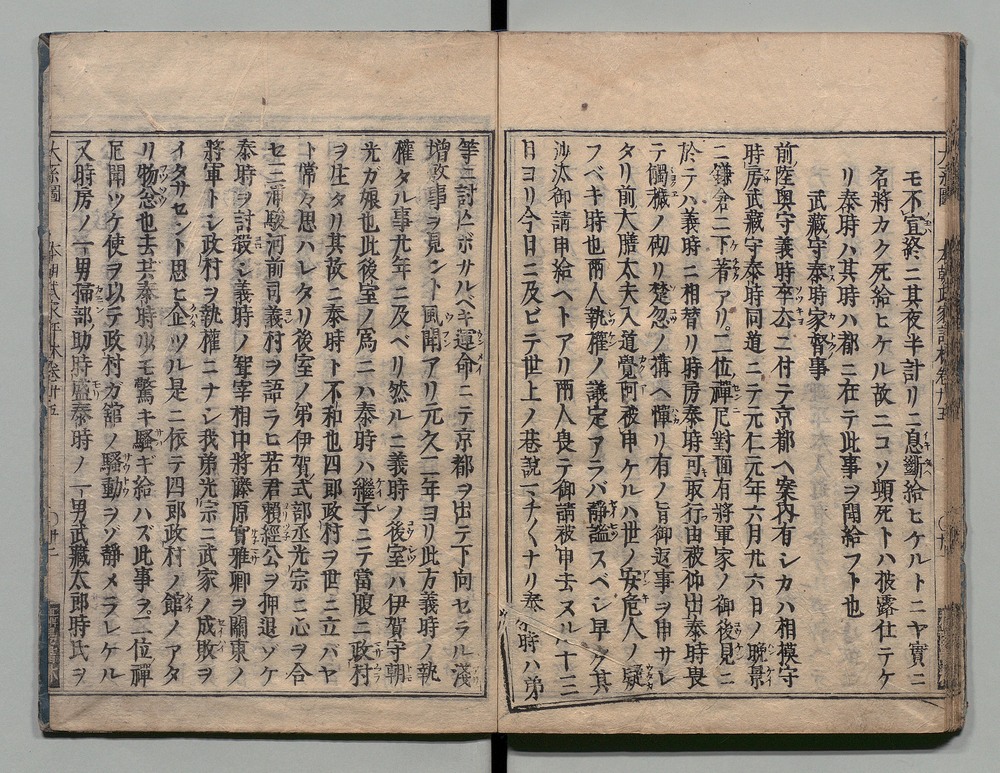 モ不宜終ニ其夜半計リニ息斷給ヒケルトニヤ實ニ
名將カク死給ヒケル故ニコソ頓死トハ披露仕テケ
リ泰時ハ其時ハ都ニ在テ此事ヲ聞給フト也
武藏守泰時家督事
前陸奥守義時卒去ニ付テ京都ヘ案内有シカハ相摸守
時房武藏守泰時同道ニテ元仁元年六月廿六日ノ晩景
ニ鎌倉ニ下著アリ二位禪尼對面有將軍家ノ御後見ニ
於テハ義時ニ相替リ時房泰時可取行由被仰出泰時畏
テ觸穢ノ砌リ楚忽ノ搆ヘ憚リ有ノ旨御返事ヲ申サレ
タリ前大膳太夫入道覺阿被申ケルハ世ノ安危人ノ疑
フベキ時也兩人執權ノ議定アラバ靜謐スベシ早ク其
沙汰御請申給ヘトアリ兩人畏テ御請被申去ヌル十三
日ヨリ今日ニ及ビテ世上ノ巷說一チ〱ナリ泰時ハ弟
等ニ討ニボサルベキ運命ニテ京都ヲ出テ下向セラル淺
增敷事ヲ見ント風聞アリ元久二年ヨリ此方義時ノ執
權タル事九年ニ及ベリ然ルニ義時ノ後室ハ伊賀守朝
光ガ娘也此後室ノ爲ニハ泰時ハ繼子ニテ當腹ニ政村
ヲ生タリ其故ニ泰時ト不和也四郎政村ヲ世ニ立バヤ
ト常々思ハレタリ後室ノ弟伊賀式部丞光宗ニ心ヲ合
セ三浦駿河前司義村ヲ語ラヒ若君賴經公ヲ押退ゾケ
泰時ヲ討殺シ義時ノ聟宰相中將藤原實雅卿ヲ關東ノ
將軍トシ政村ヲ執權ニナシ我弟光宗ニ武家ノ成敗ヲ
イタサセント思ヒ企ツル是ニ依テ四郎政村ノ館ノアタ
リ物忩也去共泰時少モ驚キ騷ギ給ハズ此事ヲ二位禪
尼聞ツケ使ヲ以テ政村ガ舘ノ騷動ヲゾ靜メラレケル
又時房ノ一男掃部助時盛泰時ノ一男武藏太郎時氏ヲ